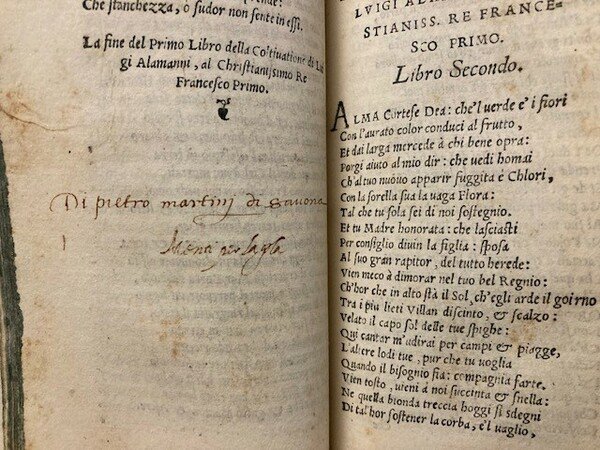 Che stanchezza, o sudor non sente in essi.
La fine del Primo Libro della Coltiuatione di Lui
gi Alamanni, al Christianissimo Re
Francesco Primo.
Di pietro martinj di Savona
LUIGI ALA
STIANISS. RE FRANCE-
SCO PRIMO.
Libro Secondo.
ALMA Cortese Dea: che'l uerde e'i fiori
Con l'aurato color conduci al frutto,
Et dai larga mercede à chi bene opra:
Porgi aiuto al mio dir: che uedi homai
Ch'al tuo nuouo apparir fuggita è Chlori,
Con la sorella sua la uaga Flora:
Tal che tu sola sei di noi sostegno.
Et tu Madre honorata: che lasciasti
Per consiglio diuin la figlia: sposa
Al suo gran rapitor, del tutto herede:
Vien meco à dimorar nel tuo bel Regnio:
Ch'hor che in alto stà il Sol, ch'egli arde il goirno
Tra i piu lieti Villan discinto, & scalzo:
Velato il capo sol delle tue spighe:
Qui cantar m'udirai per campi & piagge,
L'altere lodi tue, pur che tu uoglia
Quando il bisognio fia: compagnia farte.
Vien tosto, uieni à noi succinta & snella:
Ne quella bionda treccia hoggi si sdegni
Di tal'hor sostener la corba, e'l uaglio,